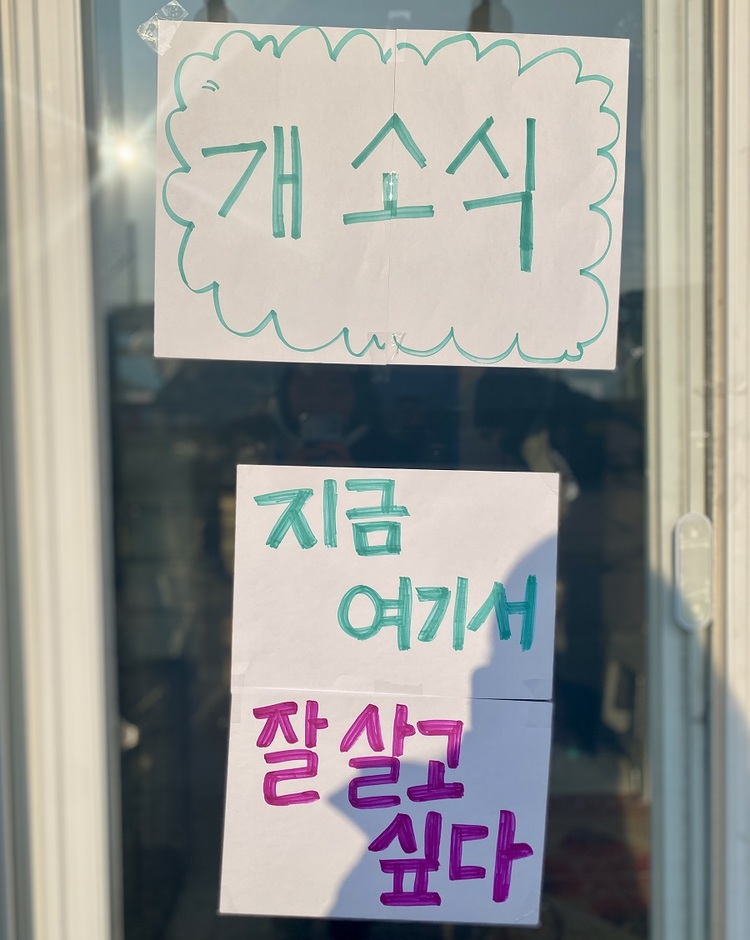 개 소식
지금
여기서
잘 살고
싶다